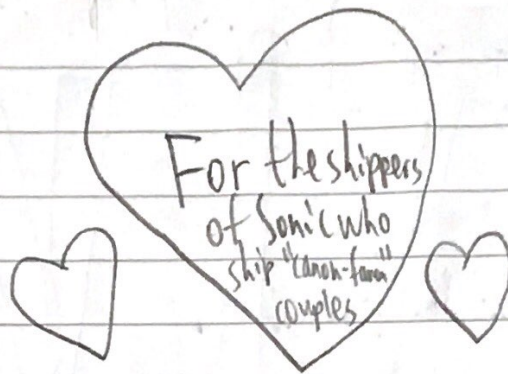 For the shippers
of Sonic who
ship "canon-fanon"
couples